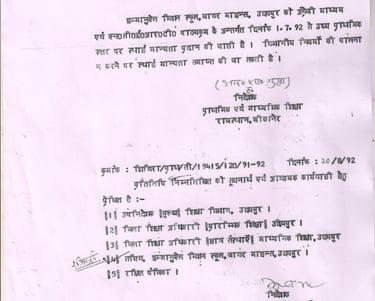 इम्मानुएल मिशन स्कूल, जावर माइन्स, उदयपुर को अंग्रेजी माध्यम
एवं एन०सी०ई०आर०टी० पाठ्यक्रम के अन्तर्गत दिनांक 1.7.92 से उच्च प्राथमिक
स्तर पर स्थाई मान्यता प्रदान की जाती है । विभागीय नियमों की पालना
न करने पर स्थाई मान्यता समाप्त की जा सकती है ।
निदेशक
प्राथमिक एवं माध्यमिक शिक्षा
राजस्थान, बीकानेर
क्रमांक : शिविरा/प्राथ/सी/19415/120/91-92 दिनांक : 20/8/92
प्रतिलिपि निम्नलिखित को सूचनार्थ एवं आवश्यक कार्यवाही हेतु
प्रेषित है :-
§1§ उपनिदेशक §पुरूष§ शिक्षा विभाग, उदयपुर ।
§2§ जिला शिक्षा अधिकारी §प्रारम्भिक§ शिक्षा, उदयपुर ।
§3§ जिला शिक्षा अधिकारी §छात्र संस्थाऐं§ माध्यमिक शिक्षा, उदयपुर
§4§ सचिव, इम्मानुएल मिशन स्कूल, जावर माइन्स, उदयपुर ।
§5§ रक्षित पंजिका ।
निदेशक